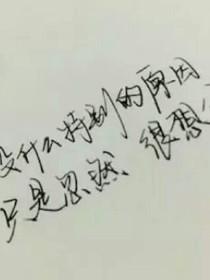 没什么特别的原因
只是忽然 很想